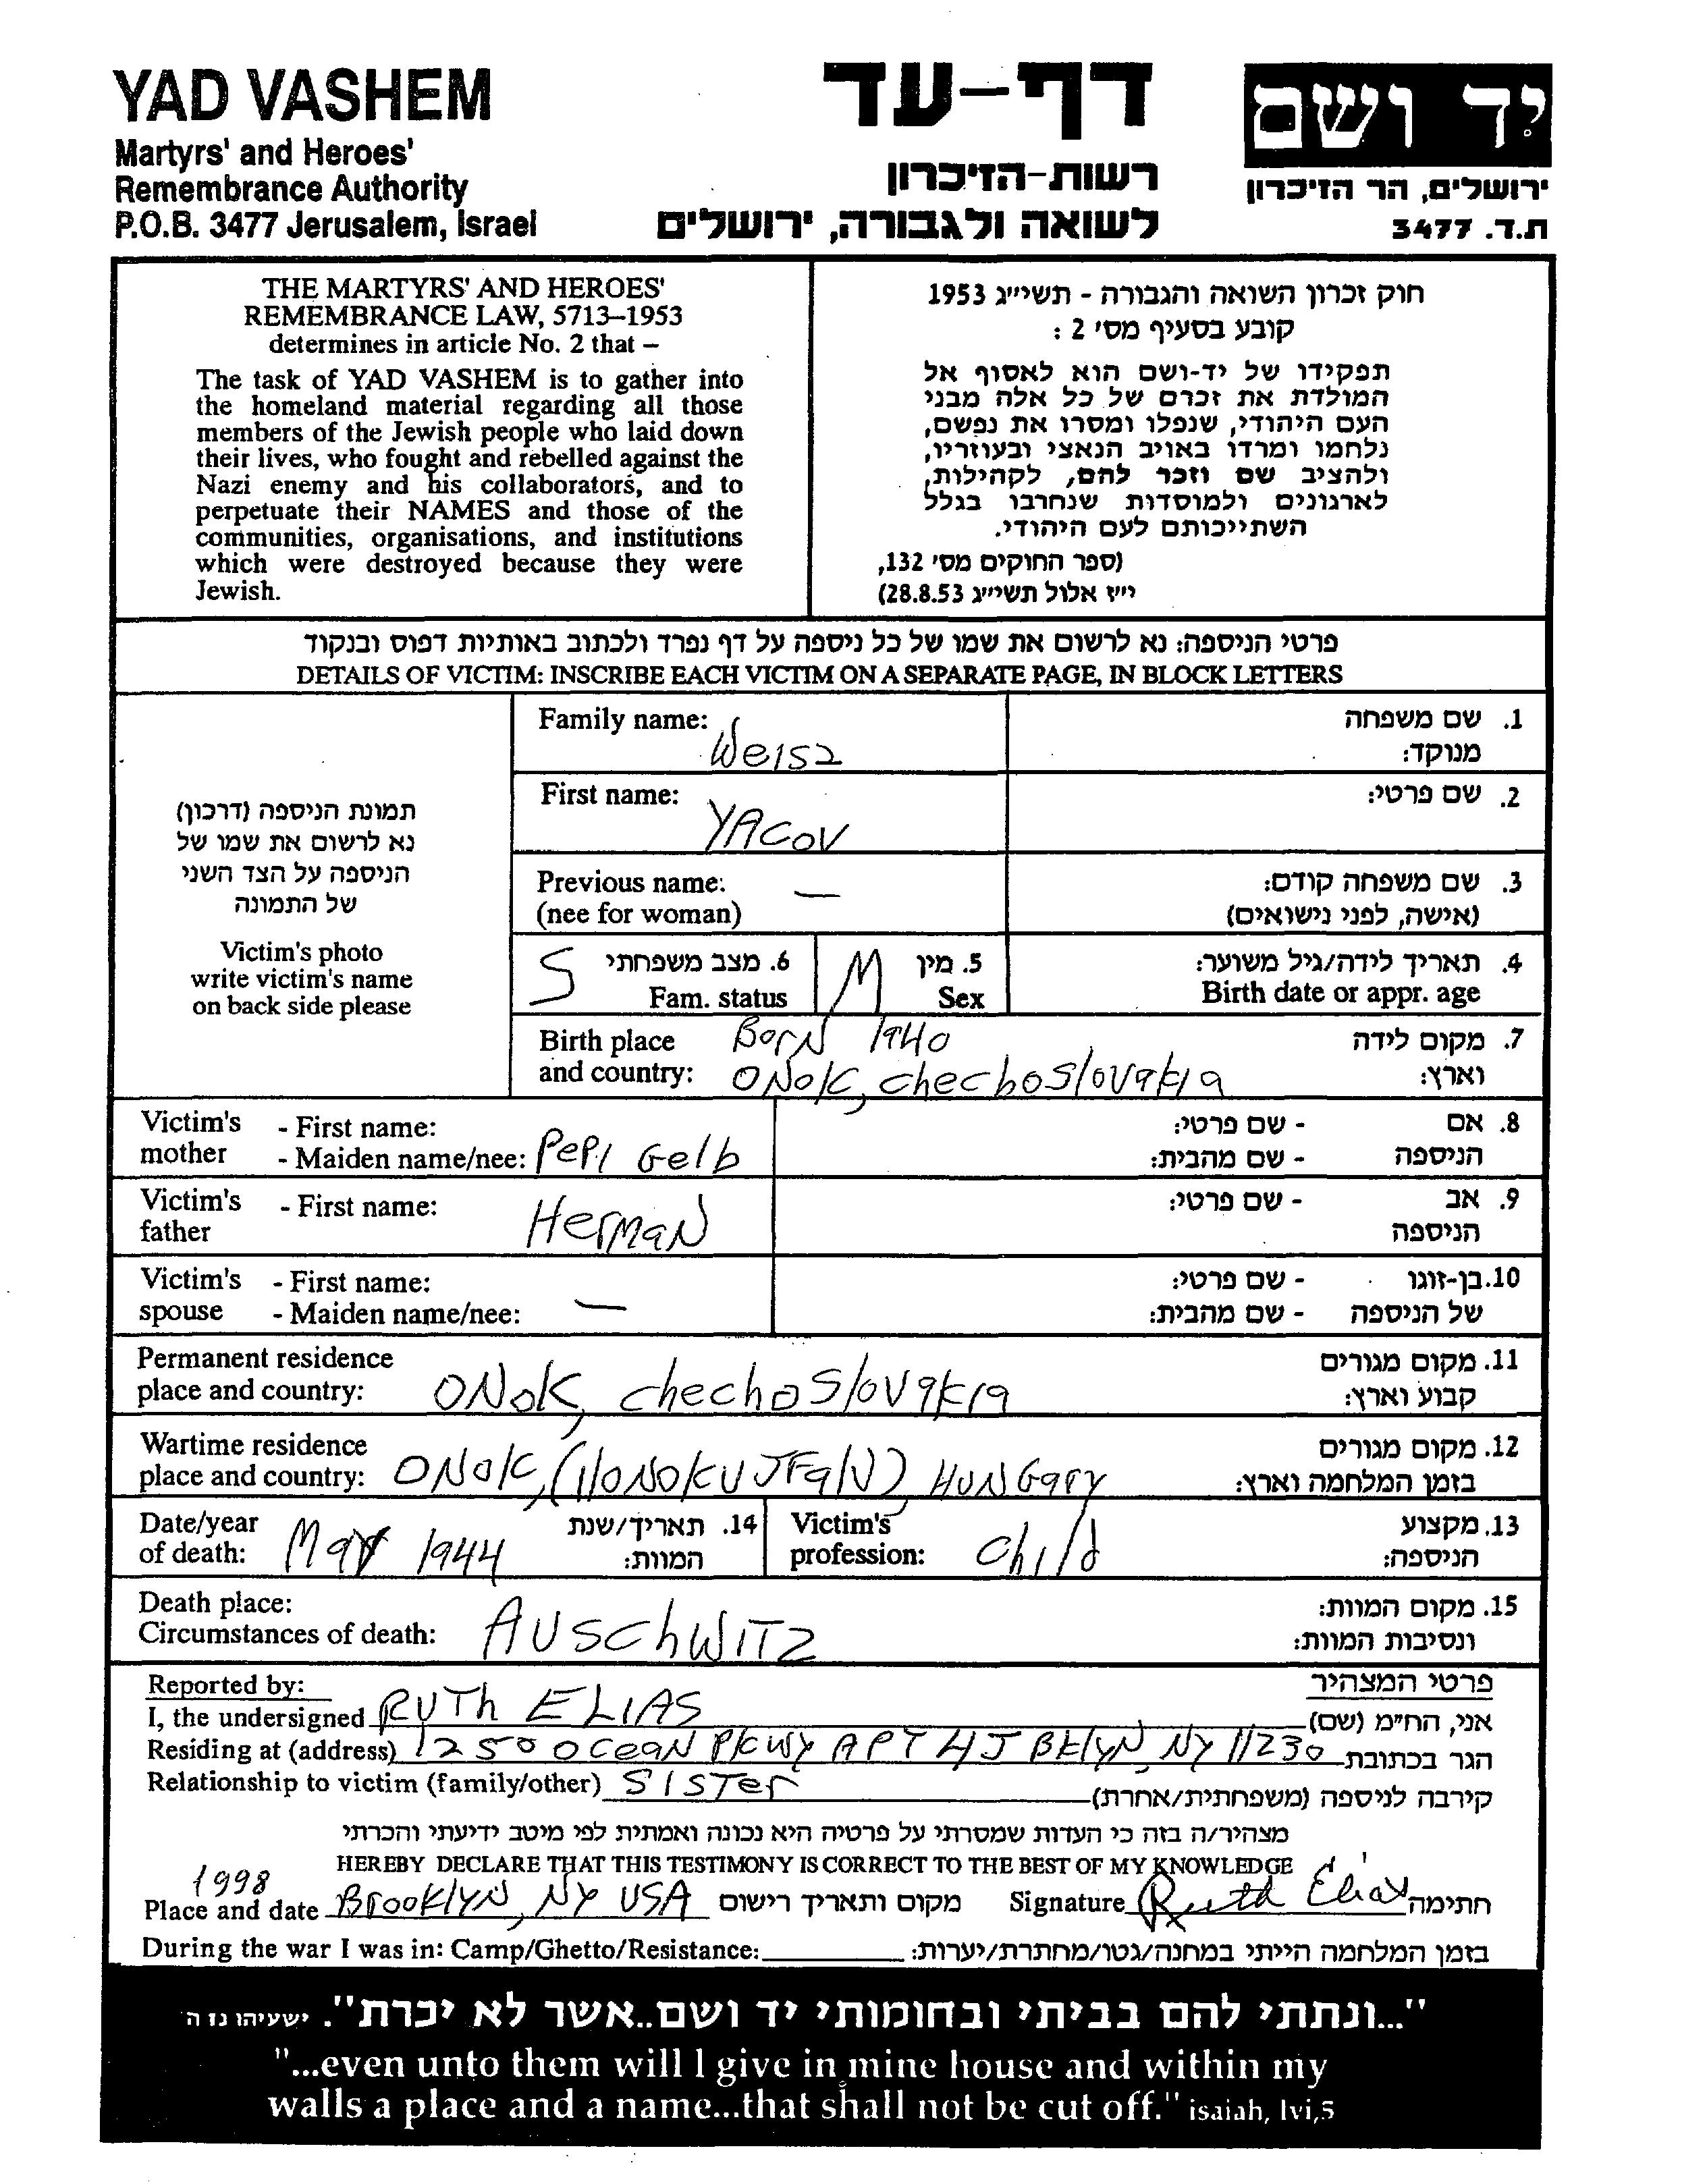 YAD VASHEM
Martyrs' and Heroes'
Remembrance Authority
P.O.B. 3477 Jerusalem, Israel
דף-עד
רשות-הזיכרון
לשואה ולגבורה, ירושלים
יד ושם
ירושלים, הר הזיכרון
ת.ד. 3477
THE MARTYRS' AND HEROES'
REMEMBRANCE LAW, 5713–1953
determines in article No. 2 that –
The task of YAD VASHEM is to gather into
the homeland material regarding all those
members of the Jewish people who laid down
their lives, who fought and rebelled against the
Nazi enemy and his collaborators, and to
perpetuate their NAMES and those of the
communities, organisations, and institutions
which were destroyed because they were
Jewish.
חוק זכרון השואה והגבורה - תשי״ג 1953
קובע בסעיף מס׳ 2 :
תפקידו של יד-ושם הוא לאסוף אל
המולדת את זכרם של כל אלה מבני
העם היהודי, שנפלו ומסרו את נפשם,
נלחמו ומרדו באויב הנאצי ובעוזריו,
ולהציב שם וזכר להם, לקהילות,
לארגונים ולמוסדות שנחרבו בגלל
השתייכותם לעם היהודי.
(ספר החוקים מס׳ 132,
י״ז אלול תשי״ג 28.8.53)
פרטי הניספה: נא לרשום את שמו של כל ניספה על דף נפרד ולכתוב באותיות דפוס ובנקוד
DETAILS OF VICTIM: INSCRIBE EACH VICTIM ON A SEPARATE PAGE, IN BLOCK LETTERS
תמונת הניספה (דרכון)
נא לרשום את שמו של
הניספה על הצד השני
של התמונה
Victim's photo
write victim's name
on back side please
Family name: Weisz 1. שם משפחה
מנוקד:
First name: YACOV 2. שם פרטי:
Previous name: — 3. שם משפחה קודם:
(nee for woman) (אישה, לפני נישואים)
S 6. מצב משפחתי M 5. מין 4. תאריך לידה/גיל משוער:
Fam. status Sex Birth date or appr. age
Birth place Born 1940 7. מקום לידה
and country: ONOK, chechoslovakia וארץ:
Victim's - First name: - שם פרטי: 8. אם
mother - Maiden name/nee: Pepi Gelb - שם מהבית: הניספה
Victim's - First name: Herman - שם פרטי: 9. אב
father הניספה
Victim's - First name: - שם פרטי: 10. בן-זוגו
spouse - Maiden name/nee: — - שם מהבית: של הניספה
Permanent residence 11. מקום מגורים
place and country: ONOK, chechoslovakia קבוע וארץ:
Wartime residence 12. מקום מגורים
place and country: ONOK, (ILONOKUJFALU) HUNGary בזמן המלחמה וארץ:
Date/year May 1944 14. תאריך/שנת Victim's child 13. מקצוע
of death: המוות: profession: הניספה:
Death place: AUSchWITZ 15. מקום המוות:
Circumstances of death: ונסיבות המוות:
Reported by: פרטי המצהיר
I, the undersigned RUTh ELIAS אני, החי״מ (שם)
Residing at (address) 1250 OceaN PKWY APT 4J BKlyN, NY 11230 הגר בכתובת
Relationship to victim (family/other) SISTer קירבה לניספה (משפחתית/אחרת)
מצהיר/ה בזה כי העדות שמסרתי על פרטיה היא נכונה ואמתית לפי מיטב ידיעתי והכרתי
HEREBY DECLARE THAT THIS TESTIMONY IS CORRECT TO THE BEST OF MY KNOWLEDGE
1998
Place and date Brooklyn, NY USA מקום ותאריך רישום Signature Ruth Elias חתימה
During the war I was in: Camp/Ghetto/Resistance: בזמן המלחמה הייתי במחנה/גטו/מחתרת/יערות:
"...ונתתי להם בביתי ובחומותי יד ושם..אשר לא יכרת". ישעיהו נו ה
"...even unto them will I give in mine house and within my
walls a place and a name...that shall not be cut off." isaiah, lvi,5